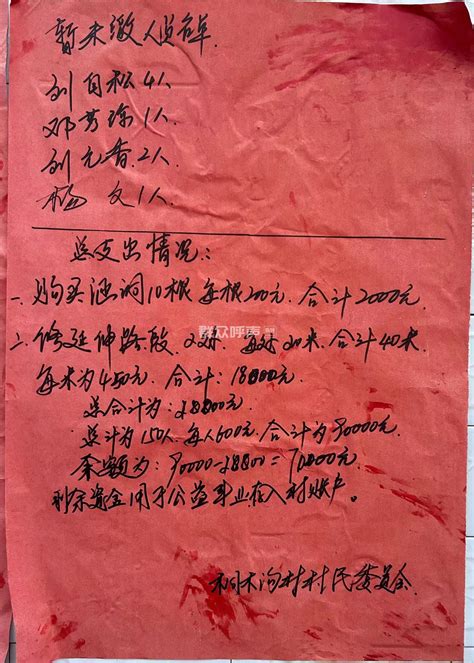 暂未缴人员名单
刘自松4人
邓芳琼1人
刘元香2人
杨 文1人
总支出情况:
一、购买涵洞10根 每根200元. 合计2000元.
二、修延伸路段. 2处. 每处20米. 合计40米
每米为450元. 合计: 18000元
总合计为: 20000元
总计为150人. 每人600元. 合计为90000元.
余额为: 90000-20000=70000元.
剩余资金用于公益事业在入村账户。
村村民委员会
群众呼声